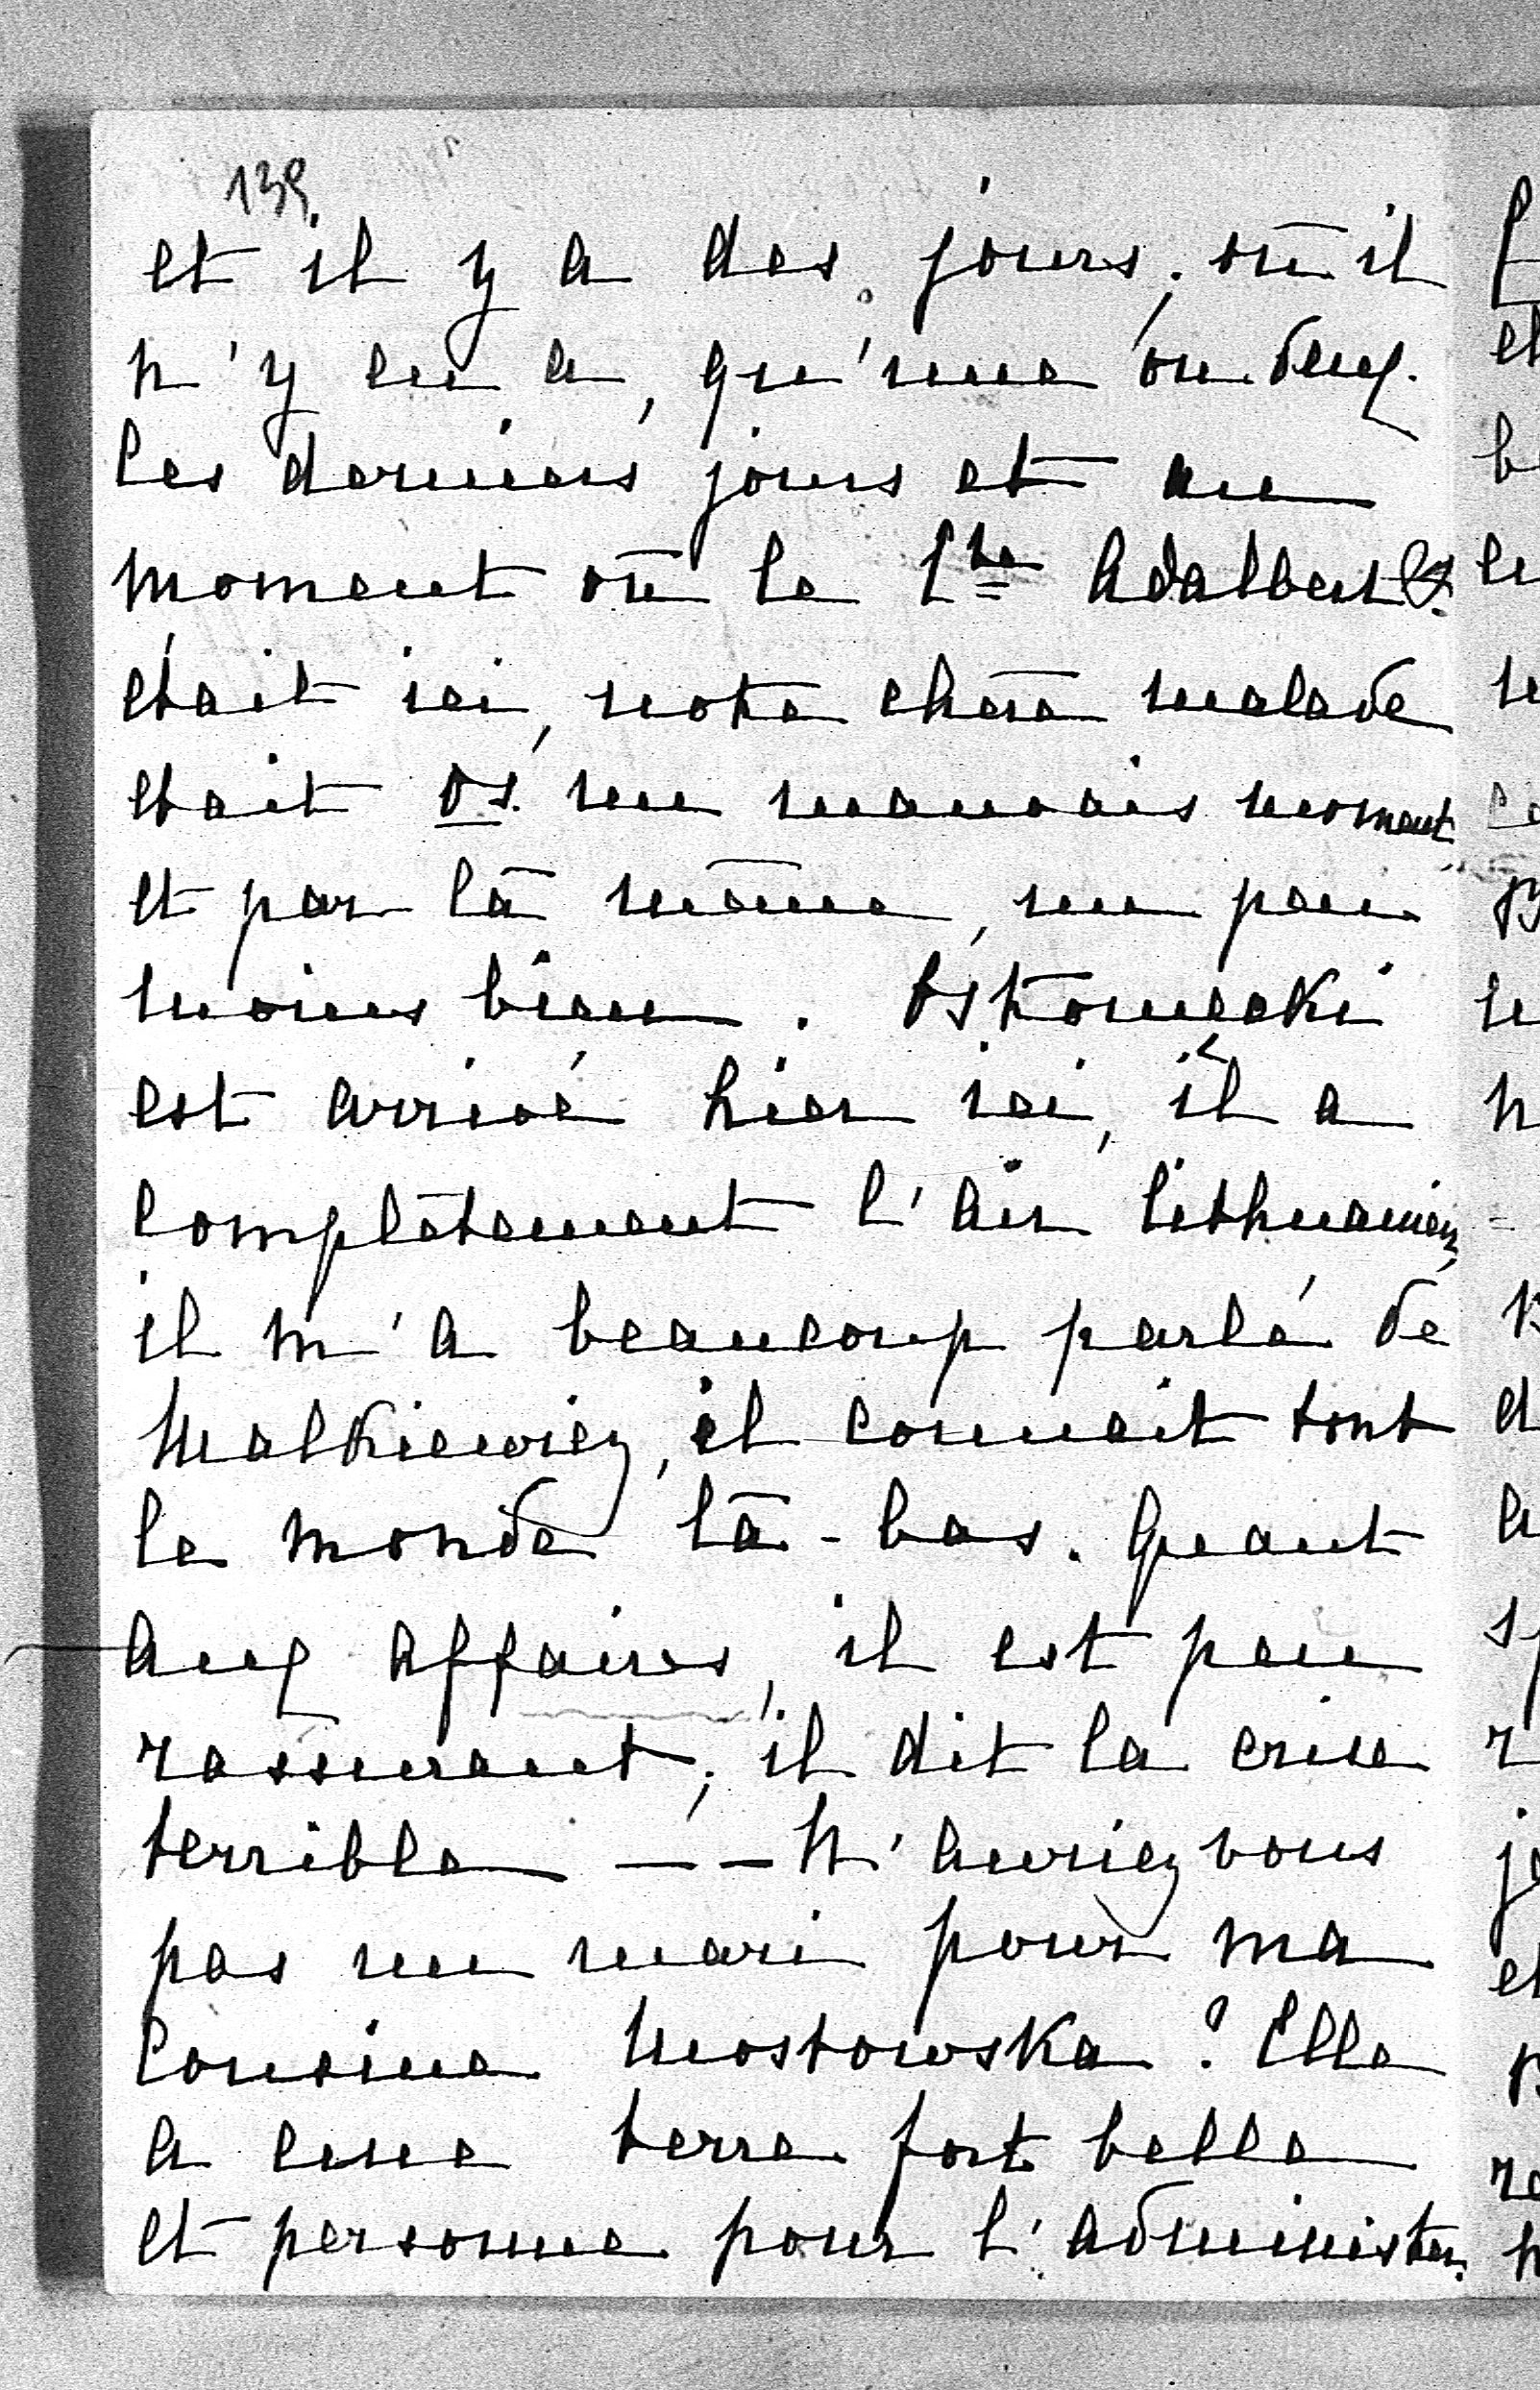 139
et il y a des jours, où il
n'y en a, qu'une ou deux.
Les derniers jours et au
moment où le Cte Adalbert
était ici, notre chère malade
était ds. un mauvais moment
et par là même, un peu
moins bien. Ostromęcki
est arrivé hier ici, il a
complètement l'air lithuanien,
il m'a beaucoup parlé de
Malkiewicz, il connait tout
le monde là-bas. Quant
aux affaires, il est peu
rassurant, il dit la crise
terrible — — N'auriez vous
pas un mari pour ma
Cousine Mostowska ? Elle
a une terre fort belle
et personne pour l'administrer.